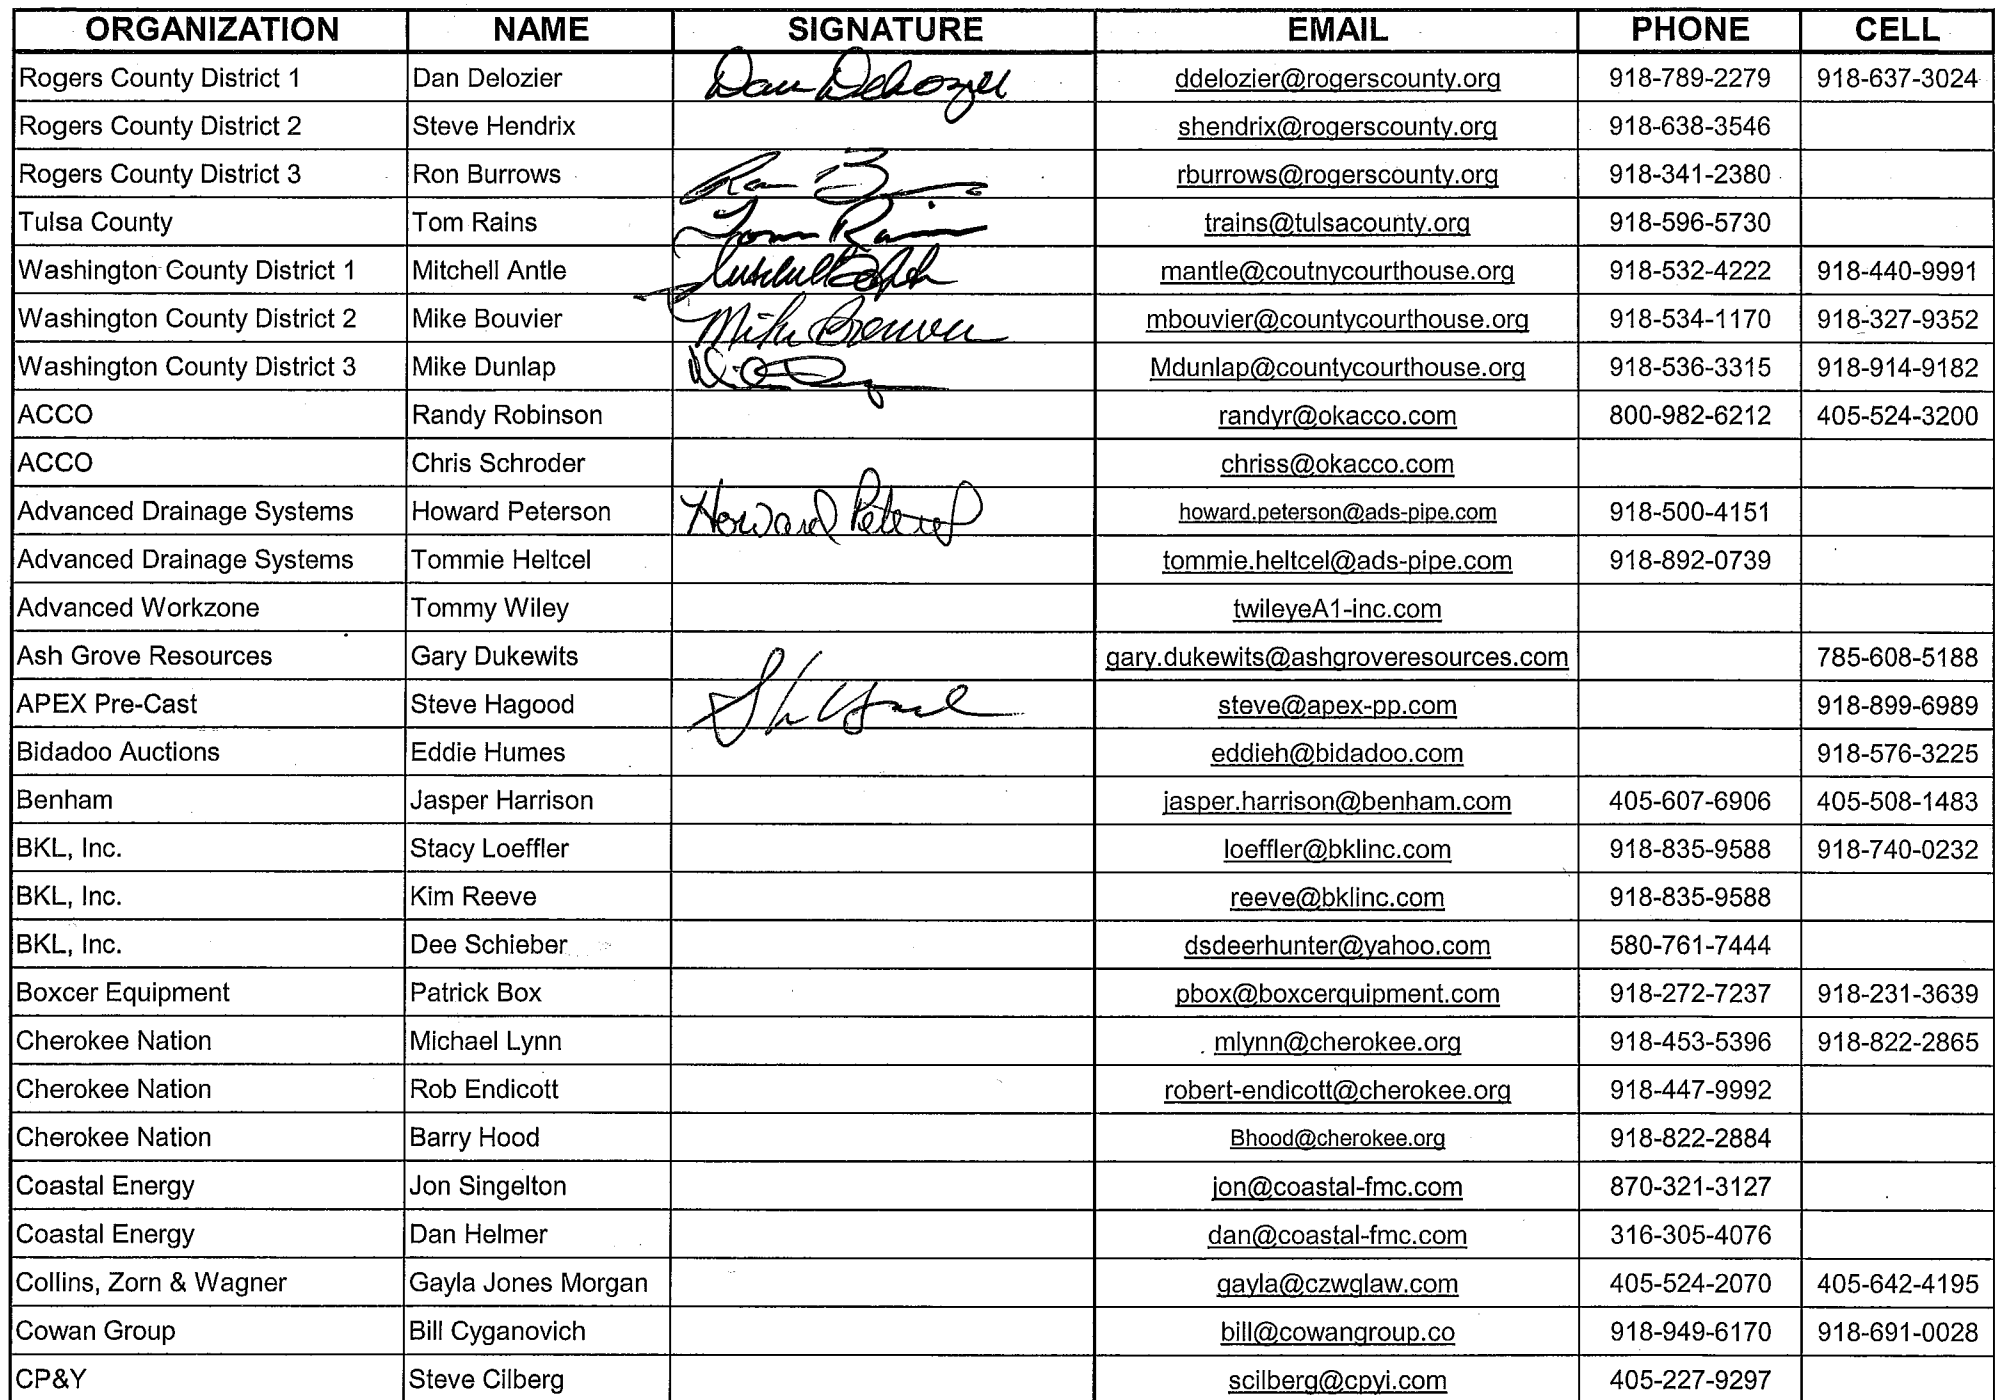 ORGANIZATION NAME SIGNATURE EMAIL PHONE CELL
Rogers County District 1 Dan Delozier Dan Delozier ddelozier@rogerscounty.org 918-789-2279 918-637-3024
Rogers County District 2 Steve Hendrix shendrix@rogerscounty.org 918-638-3546
Rogers County District 3 Ron Burrows rburrows@rogerscounty.org 918-341-2380
Tulsa County Tom Rains Tom Rains trains@tulsacounty.org 918-596-5730
Washington County District 1 Mitchell Antle mantle@coutnycourthouse.org 918-532-4222 918-440-9991
Washington County District 2 Mike Bouvier Mike Bouvier mbouvier@countycourthouse.org 918-534-1170 918-327-9352
Washington County District 3 Mike Dunlap Mdunlap@countycourthouse.org 918-536-3315 918-914-9182
ACCO Randy Robinson randyr@okacco.com 800-982-6212 405-524-3200
ACCO Chris Schroder chriss@okacco.com
Advanced Drainage Systems Howard Peterson Howard Peterson howard.peterson@ads-pipe.com 918-500-4151
Advanced Drainage Systems Tommie Heltcel tommie.heltcel@ads-pipe.com 918-892-0739
Advanced Workzone Tommy Wiley twileyeA1-inc.com
Ash Grove Resources Gary Dukewits gary.dukewits@ashgroveresources.com 785-608-5188
APEX Pre-Cast Steve Hagood steve@apex-pp.com 918-899-6989
Bidadoo Auctions Eddie Humes eddieh@bidadoo.com 918-576-3225
Benham Jasper Harrison jasper.harrison@benham.com 405-607-6906 405-508-1483
BKL, Inc. Stacy Loeffler loeffler@bklinc.com 918-835-9588 918-740-0232
BKL, Inc. Kim Reeve reeve@bklinc.com 918-835-9588
BKL, Inc. Dee Schieber dsdeerhunter@yahoo.com 580-761-7444
Boxcer Equipment Patrick Box pbox@boxcerquipment.com 918-272-7237 918-231-3639
Cherokee Nation Michael Lynn mlynn@cherokee.org 918-453-5396 918-822-2865
Cherokee Nation Rob Endicott robert-endicott@cherokee.org 918-447-9992
Cherokee Nation Barry Hood Bhood@cherokee.org 918-822-2884
Coastal Energy Jon Singelton jon@coastal-fmc.com 870-321-3127
Coastal Energy Dan Helmer dan@coastal-fmc.com 316-305-4076
Collins, Zorn & Wagner Gayla Jones Morgan gayla@czwglaw.com 405-524-2070 405-642-4195
Cowan Group Bill Cyganovich bill@cowangroup.co 918-949-6170 918-691-0028
CP&Y Steve Cilberg scilberg@cpyi.com 405-227-9297